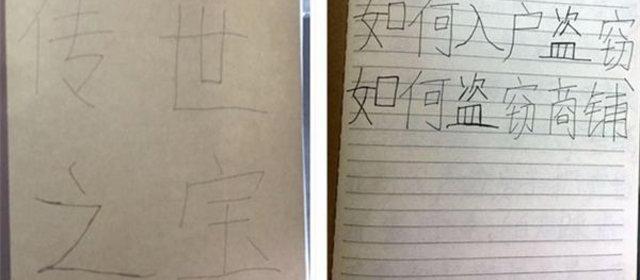 传世
之宝
如何入户盗窃
如何盗窃商铺